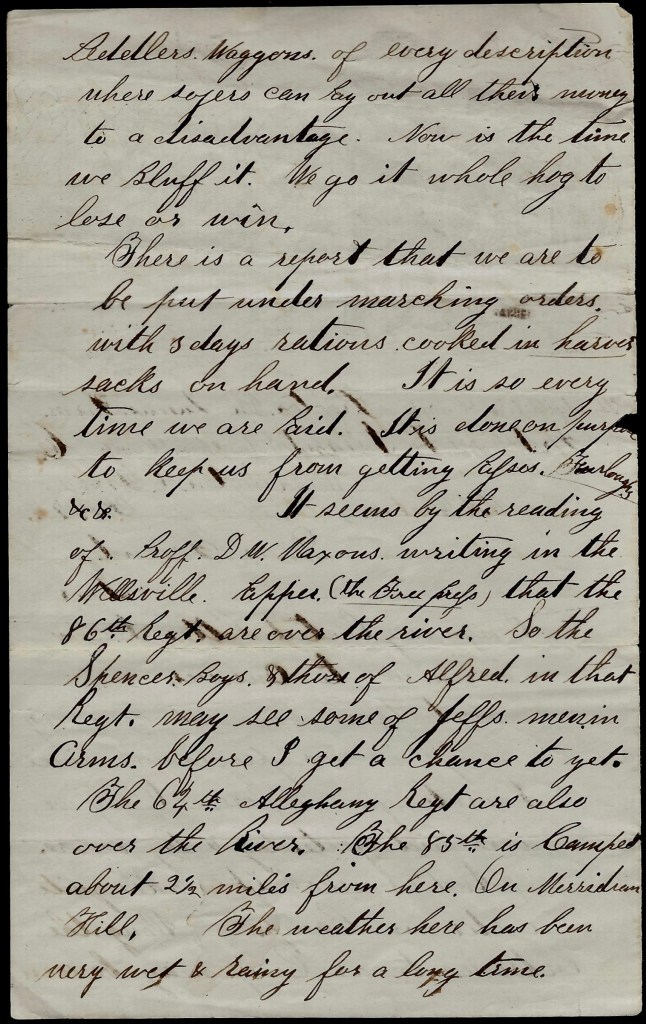 Waggons. of every description
where sojers can lay out all their money
to a disadvantage. Now is the time
we Bluff it. We go it whole hog to
lose or win.
There is a report that we are to
be put under marching orders.
with 3 days rations cooked in haver
sacks on hand. It is so every
time we are Paid. It is done on
to keep us from getting Furloughs
&c &c. It seems by the reading
of Proff. D W. Maxons. writing in the
Wellsville. (the Free press) that the
86th Regt. are over the river. So the
Spencer. Boys. & those of Alfred. in that
Regt. may see some of Jeffs. men in
Arms. before I get a chance to yet.
The 64th Alleghany Regt are also
over the River. The 85th is Camped
about 2 1/2 miles from here. On
Hill. The weather here has been
very wet & Rainy for a long time.